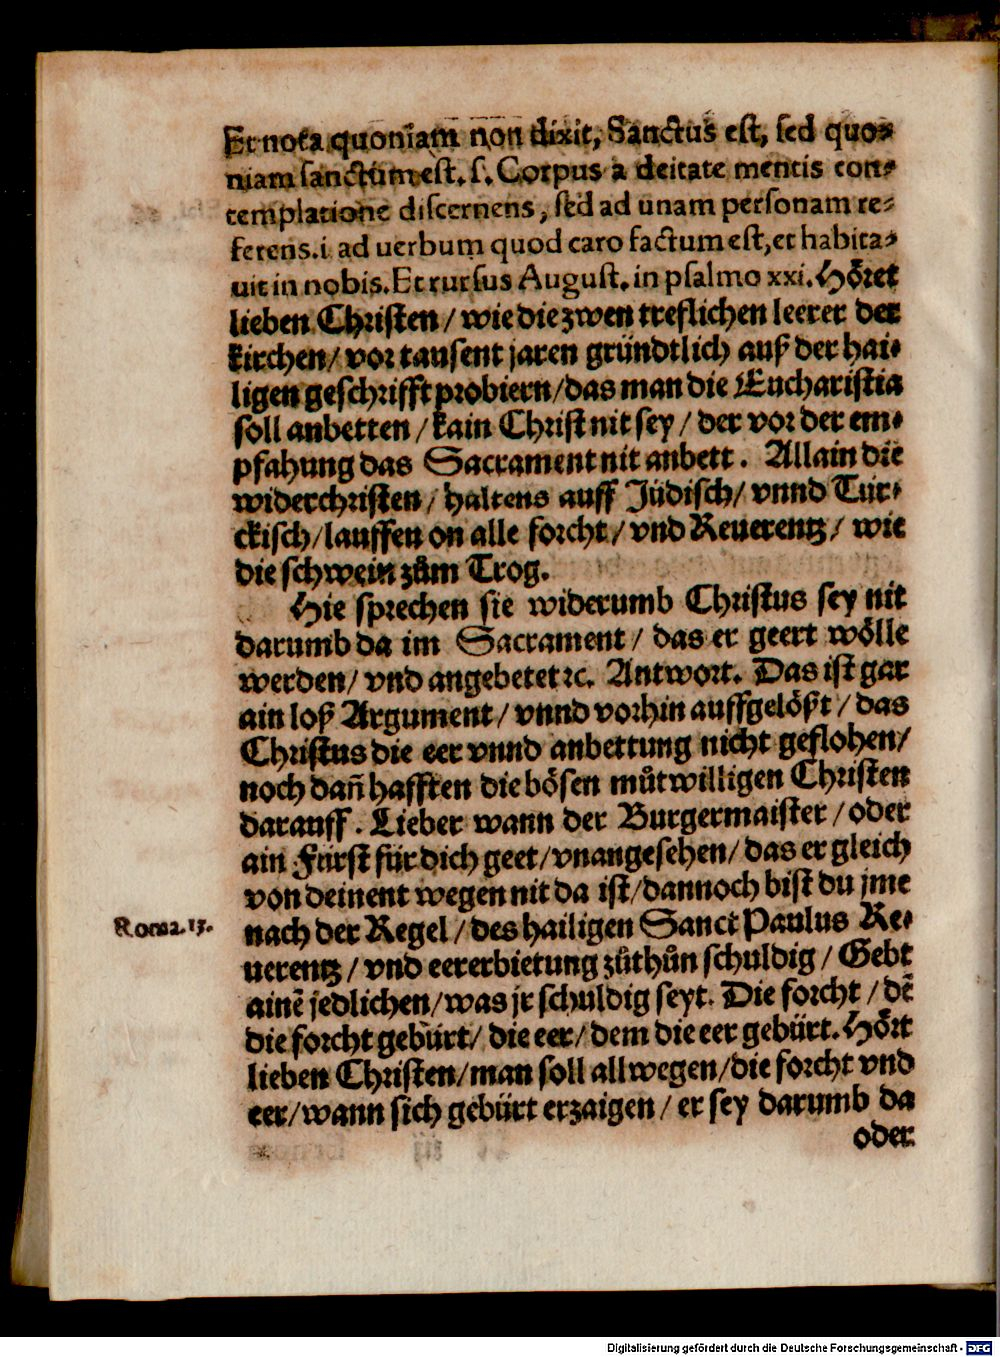 Et nota quoniam non dixit, Sanctus est, sed quo⸗
niam sanctum est. s. Corpus a deitate mentis con⸗
templatione discernens, sed ad unam personam re⸗
ferens. i. ad uerbum quod caro factum est, et habita⸗
uit in nobis. Et rursus August. in psalmo xxi. Hoͤret
lieben Christen / wie die zwen treflichen leerer der
kirchen / vor tausent jaren gründtlich auß der hai⸗
ligen geschrifft probiern / das man die Eucharistia
soll anbetten / kain Christ nit sey / der vor der em⸗
pfahung das Sacrament nit anbett. Allain die
widerchristen / haltens auff Jüdisch / vnnd Tür⸗
ckisch / lauffen on alle forcht / vnd Reuerentz / wie
die schwein zům Trog.
Hie sprechen sie widerumb Christus sey nit
darumb da im Sacrament / das er geert woͤlle
werden / vnd angebetet ꝛc. Antwort. Das ist gar
ain loß Argument / vnnd vorhin auffgeloͤßt / das
Christus die eer vnnd anbettung nicht geflohen /
noch dañ hafften die boͤsen můtwilligen Christen
darauff. Lieber wann der Burgermaister / oder
ain Fürst für dich geet / vnangesehen / das er gleich
von deinent wegen nit da ist / dannoch bist du jme
nach der Regel / des hailigen Sanct Paulus Re⸗
uerentz / vnd eererbietung zůthůn schuldig / Gebt
ainē jedlichen / was jr schuldig seyt. Die forcht / dē
die forcht gebürt / die eer / dem die eer gebürt. Hoͤrt
lieben Christen / man soll allwegen / die forcht vnd
eer / wann sich gebürt erzaigen / er sey darumb da
oder
Roma. 13.
Digitalisierung gefördert durch die Deutsche Forschungsgemeinschaft - DFG